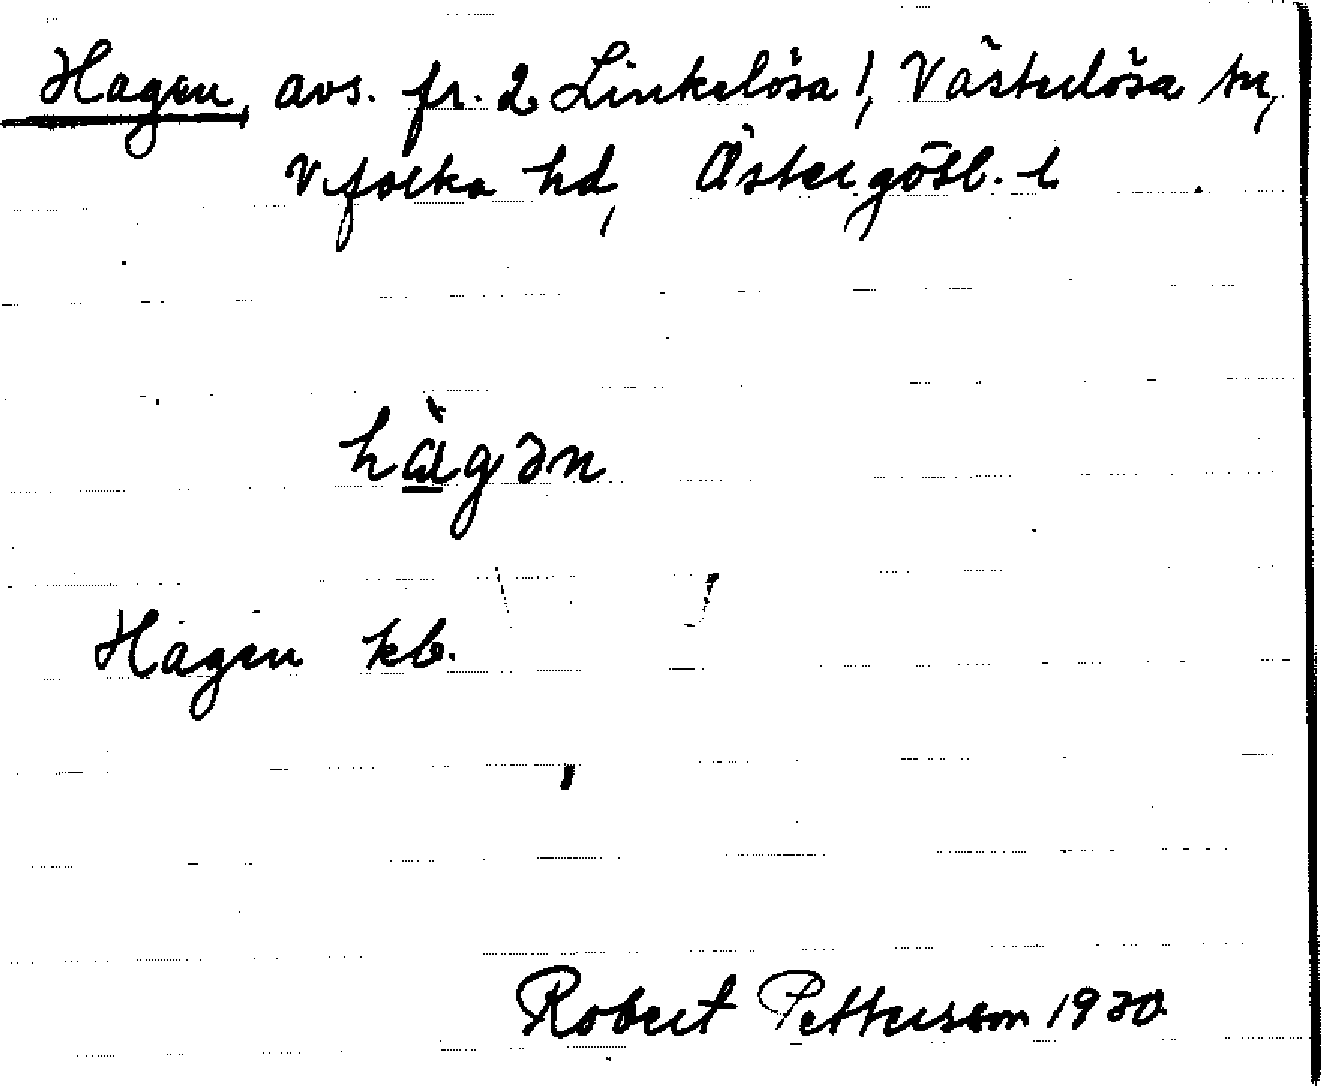 Hagen, avs. fr. 2 Linkelösa !, Västerlösa sn,
Vifolka hd, Östergötl. l
hàgən
Hagen kb.
Robert Petterson 1930